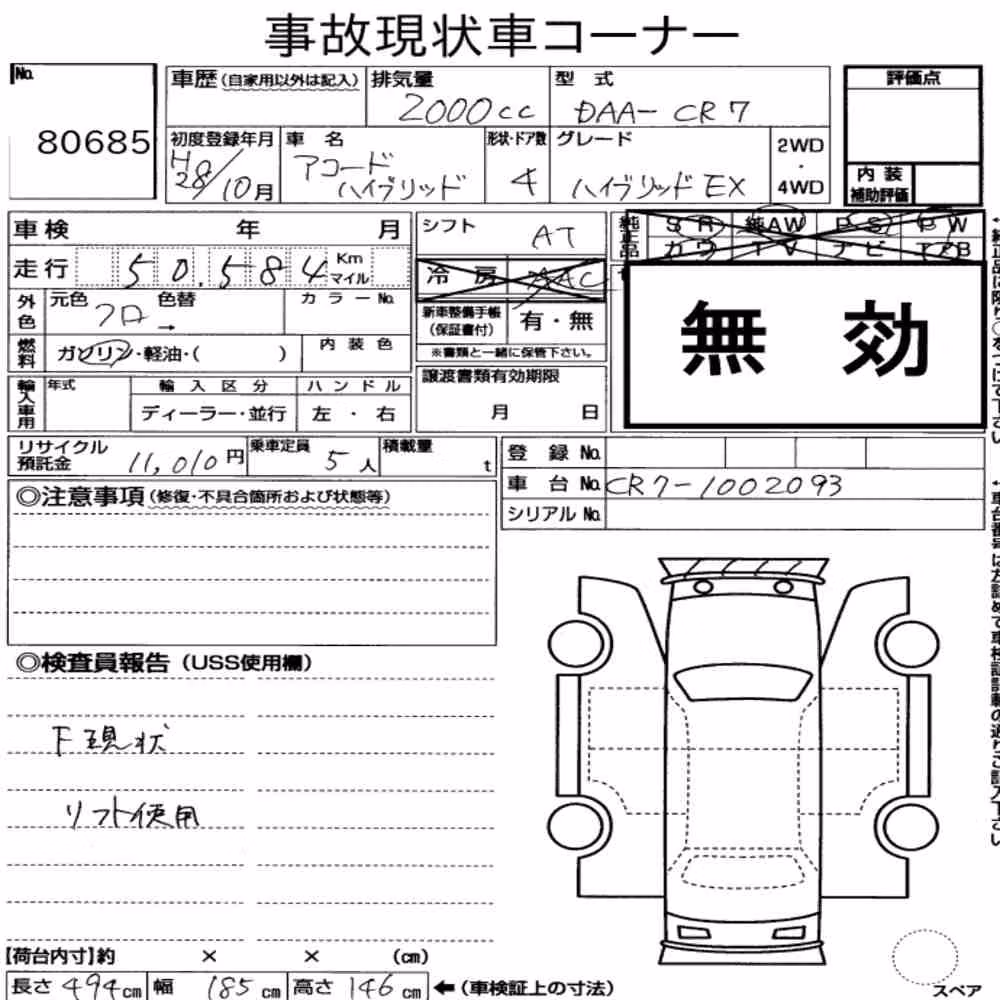 事故現状車コーナー
No. 80685
車歴(自家用以外は記入) 排気量 2000cc 型式 DAA-CR7 評価点
初度登録年月 H28/10月 車名 アコード ハイブリッド 形状・ドア数 4 グレード ハイブリッドEX 2WD・4WD
内装補助評価
車検 年 月 シフト AT 純正品 SR 純AW PS PW
走行 50,584 Km マイル 冷房 AAC カワ TV ナビ
外色 元色 クロ 色替 → カラーNo. 新車整備手帳(保証書付) 有・無
無効
燃料 ガソリン・軽油・( ) 内装色 ※書類と一緒に保管下さい。
輸入車用 年式 輸入区分 ディーラー・並行 ハンドル 左・右 譲渡書類有効期限 月 日
リサイクル預託金 11,010円 乗車定員 5人 積載量 t 登録No.
車台No. CR7-1002093
シリアルNo.
◎注意事項(修復・不具合箇所および状態等)
◎検査員報告(USS使用欄)
F現状
リフト使用
【荷台内寸】約 × × (cm)
長さ 494cm 幅 185cm 高さ 146cm ←(車検証上の寸法)
スペア